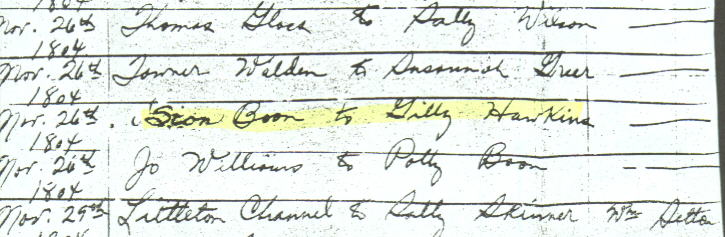 1804
Nov. 26th Thomas Glock to Sally Wilson
1804
Nov. 26th Towner Walden to Susannah Greer
1804
Nov. 26th. Sion Boon to Gilly Hawkins
1804
Nov. 26th Jo Williams to Polly Boon
1804
Nov. 29th Littleton Channel to Sally Skinner Wm Sitton
1804